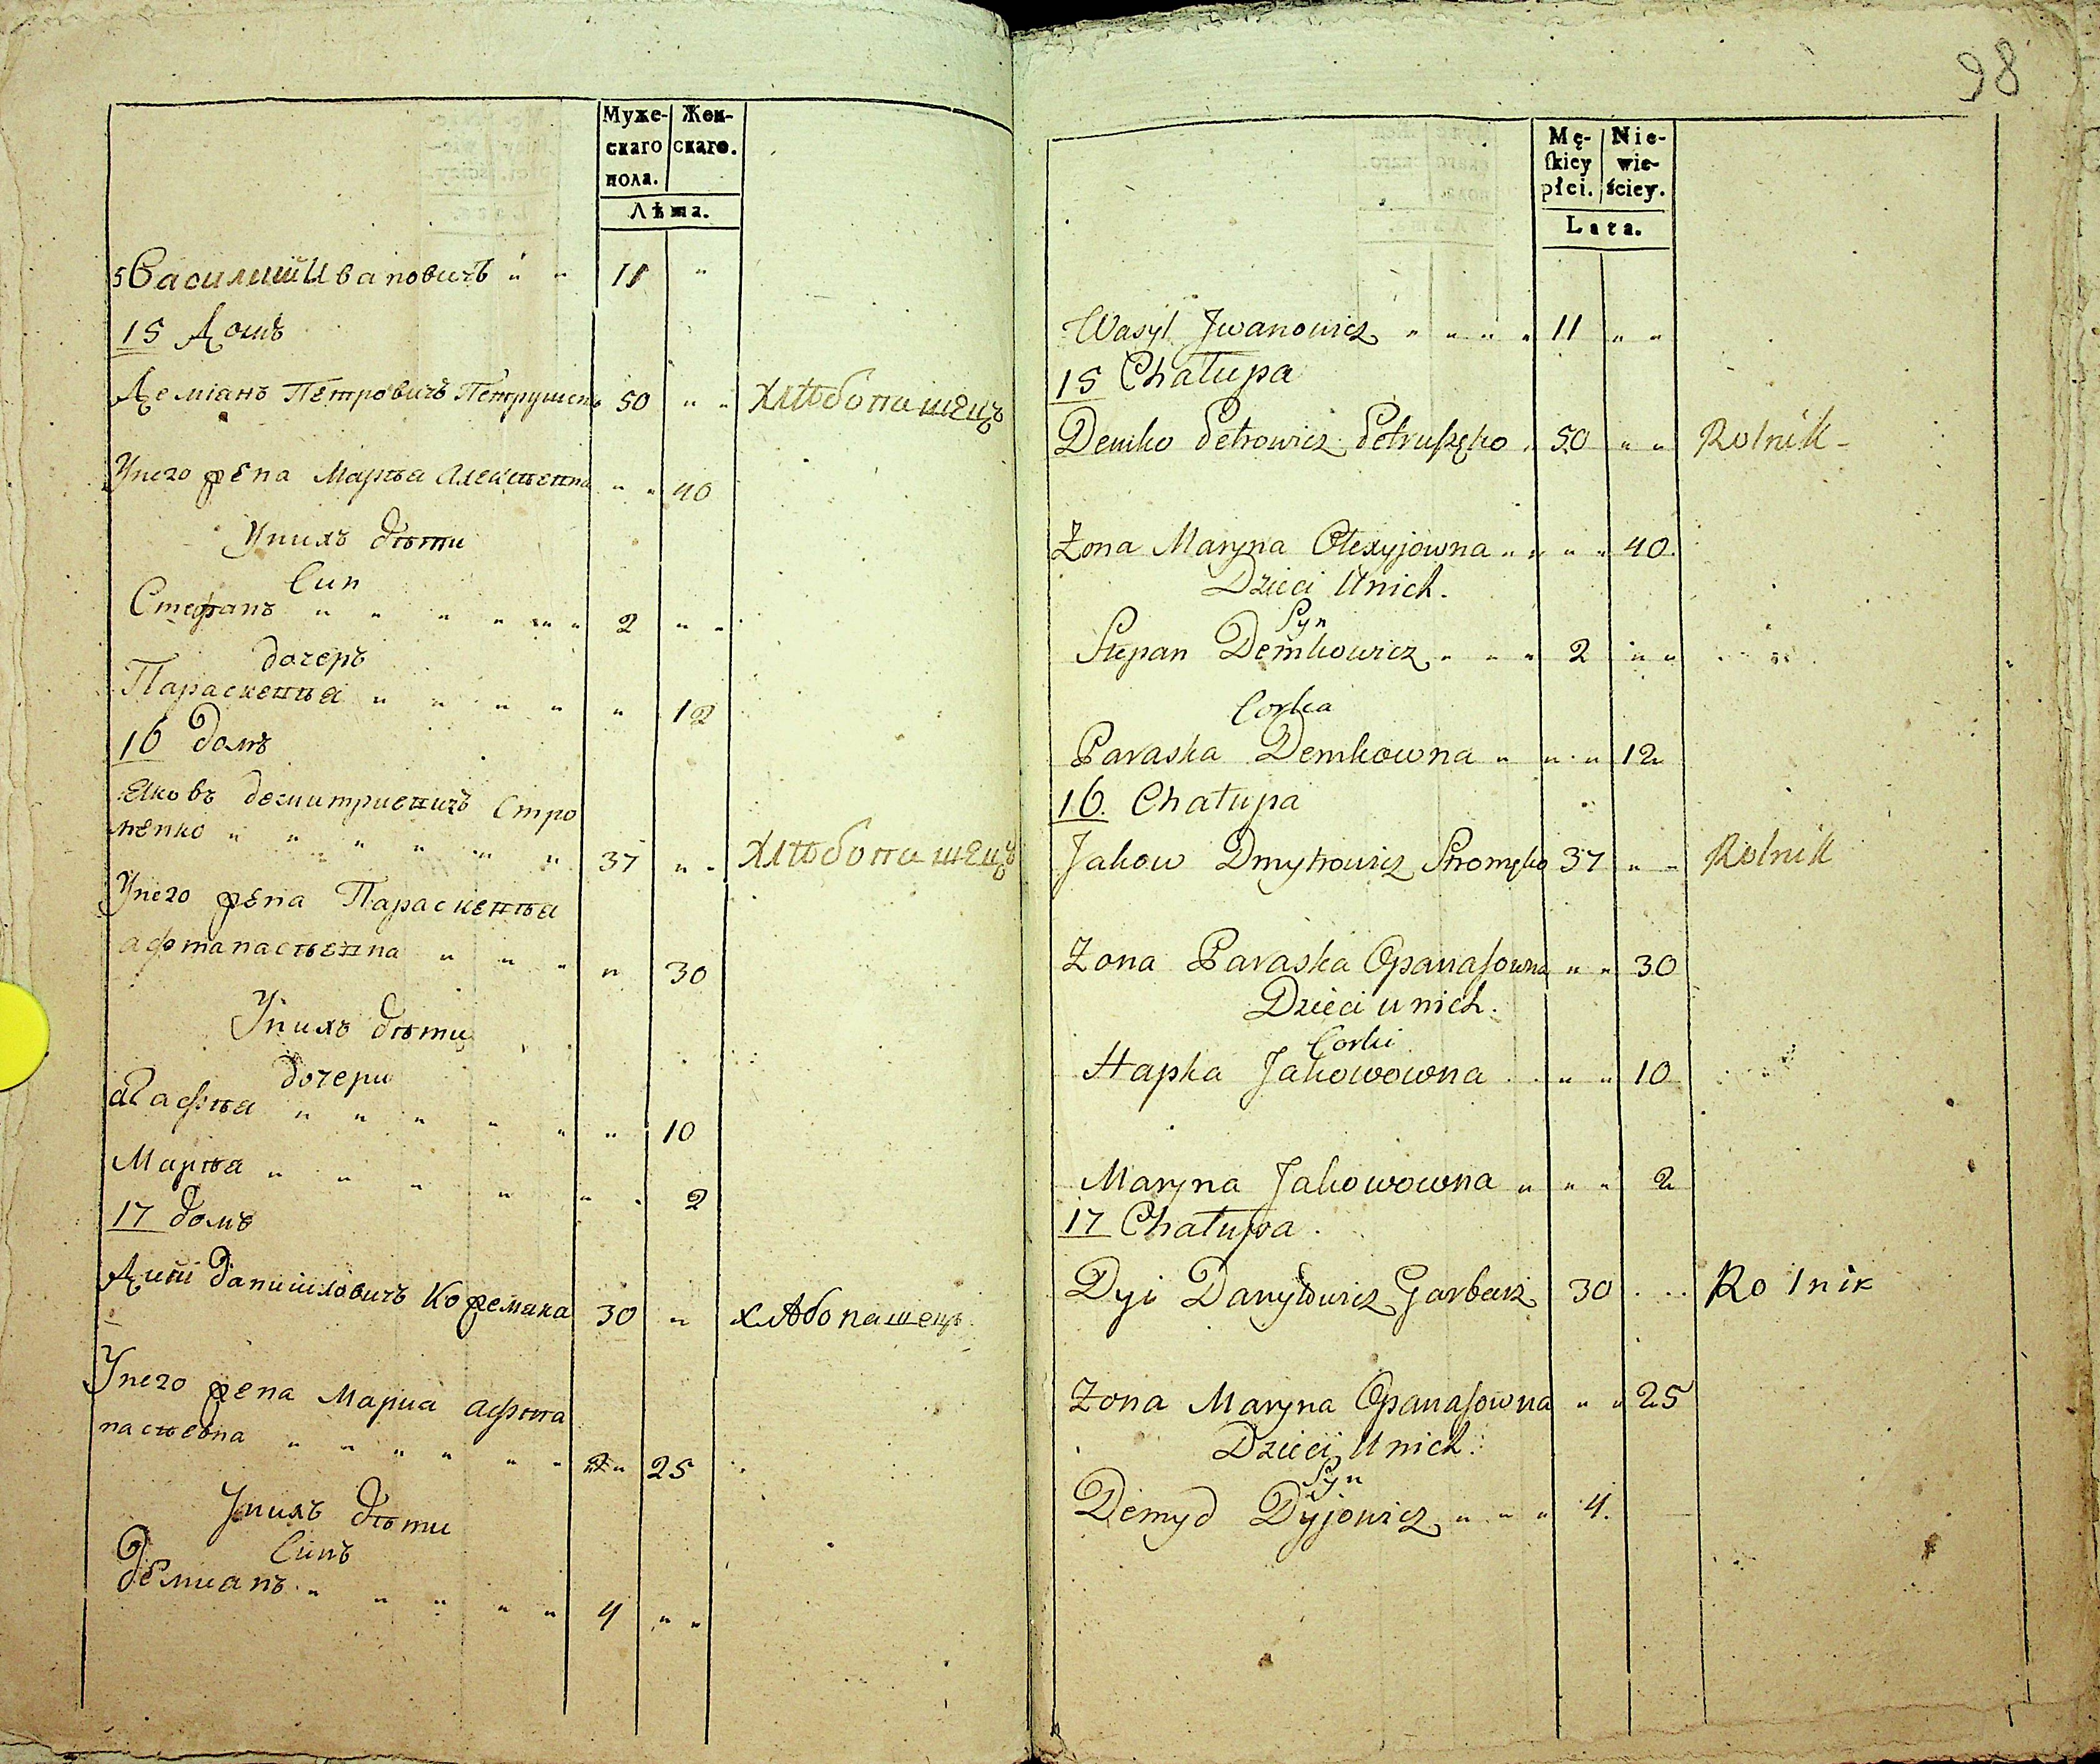 Муже- Жен-
скаго скаго.
пола.
Лѣта.
5 Василий Ивановичъ " " 11 "
15 Домъ
Деміанъ Петровичъ Петрушенко 50 " " хлѣбопашецъ
Унего жена Марѣа Алексѣевна " " 40
Унихъ дѣти
Син
Стефанъ " " " " " " 2 " "
дочеръ
Параскевѣа " " " " " " 12
16 домъ
Яковъ демитриевичъ Стро
менко " " " " " " 37 " " хлѣбопашецъ
Унего жена Параскевѣа
афтанасѣевна " " " " 30
Унихъ дѣти
дочери
агафѣа " " " " " " 10
Марѣа " " " " " " 2
17 домъ
Дий Даниіловичъ Кожемака 30 " хлѣбопашецъ
Унего жена Мариа афта
насѣевна " " " " " " 25
Унихъ дѣти
Синъ
демианъ " " " " " 4 " "
98
Mę- Nie-
ſkiey wie-
płci. ściey.
Lata.
Wasyl Jwanowicz " " " " 11 " "
15 Chałupa
Demko Petrowicz Petruszęko " 50 " " Rolnik -
Zona Maryna Olexyjowna " " " " 40.
Dzieci Unich.
Syn
Stepan Demkowicz " " " 2 " "
Corka
Paraska Demkowna " " " 12
16. Chałupa
Jakow Dmytrowicz Stromęko 37 " " Rolnik
Zona Paraska Opanaſowna " " 30
Dzieci u nich.
Corki
Hapka Jakowowna " " " 10
Maryna Jakowowna " " " 2
17 Chałupa.
Dyi Danyłowicz Garbarz 30 " " Rolnik
Zona Maryna Opanaſowna " " 25
Dzieci Unich.
Syn
Demyd Dyjowicz " " " 4.